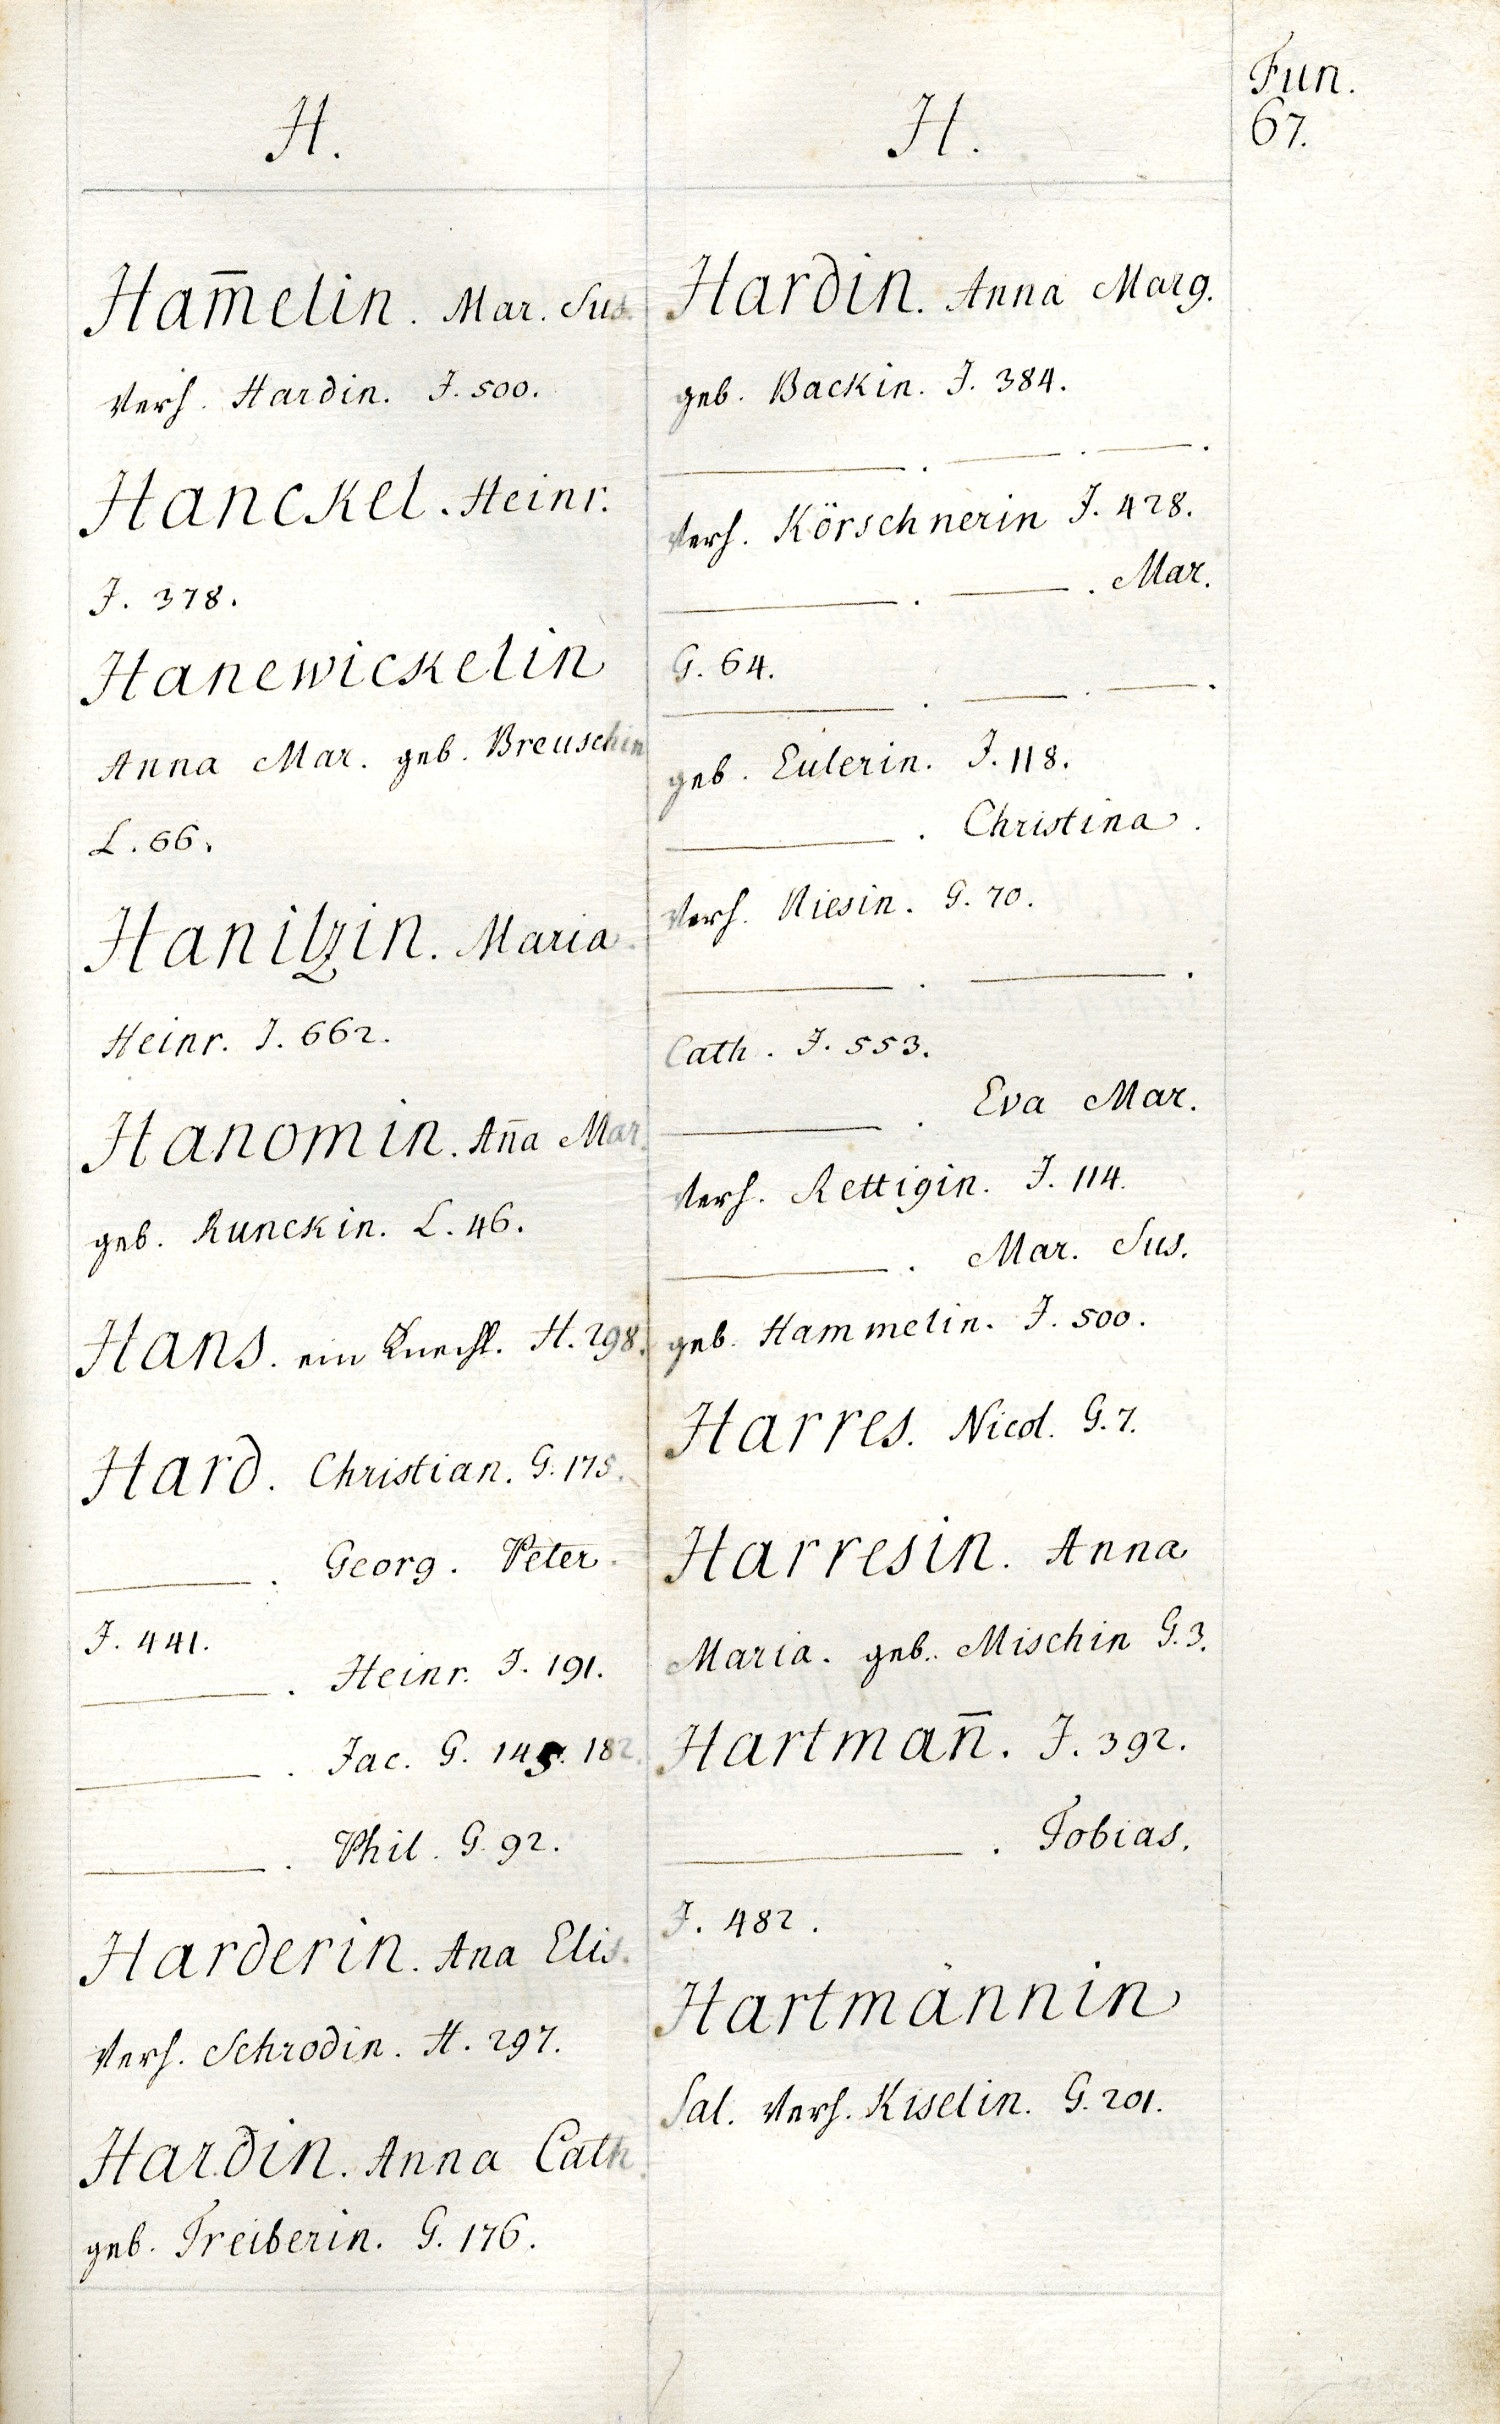 Fun.
67.
H.
Ham̅elin. Mar. Sus.
Verh. Hardin. J. 500.
Hanckel. Heinr.
J. 378.
Hanewickelin
Anna Mar. geb. Breuschin
L. 66.
Hanitzin. Maria
Heinr. J. 662.
Hanomin. An̅a Mar.
geb. Runckin. L. 46.
Hans. ein Knecht. H. 298.
Hard. Christian. G. 175.
———. Georg. Peter.
J. 441.
———. Heinr. J. 191.
———. Jac. G. 145. 182.
———. Phil. G. 92.
Harderin. Ana Elis.
Verh. Schrodin. H. 297.
Hardin. Anna Cath.
geb. Treiberin. G. 176.
H.
Hardin. Anna Marg.
geb. Backin. J. 384.
———. ———. ———.
Verh. Körschnerin J. 428.
———. ———. Mar.
G. 64.
———. ———. ———.
geb. Eulerin. J. 118.
———. Christina.
Verh. Riesin. G. 70.
———. ———.
Cath. J. 553.
———. Eva Mar.
Verh. Rettigin. J. 114.
———. Mar. Sus.
geb. Hammelin. J. 500.
Harres. Nicol. G. 7.
Harresin. Anna
Maria. geb. Mischin G. 3.
Hartman̅. J. 392.
———. Tobias.
J. 482.
Hartmännin
Sal. Verh. Kiselin. G. 201.